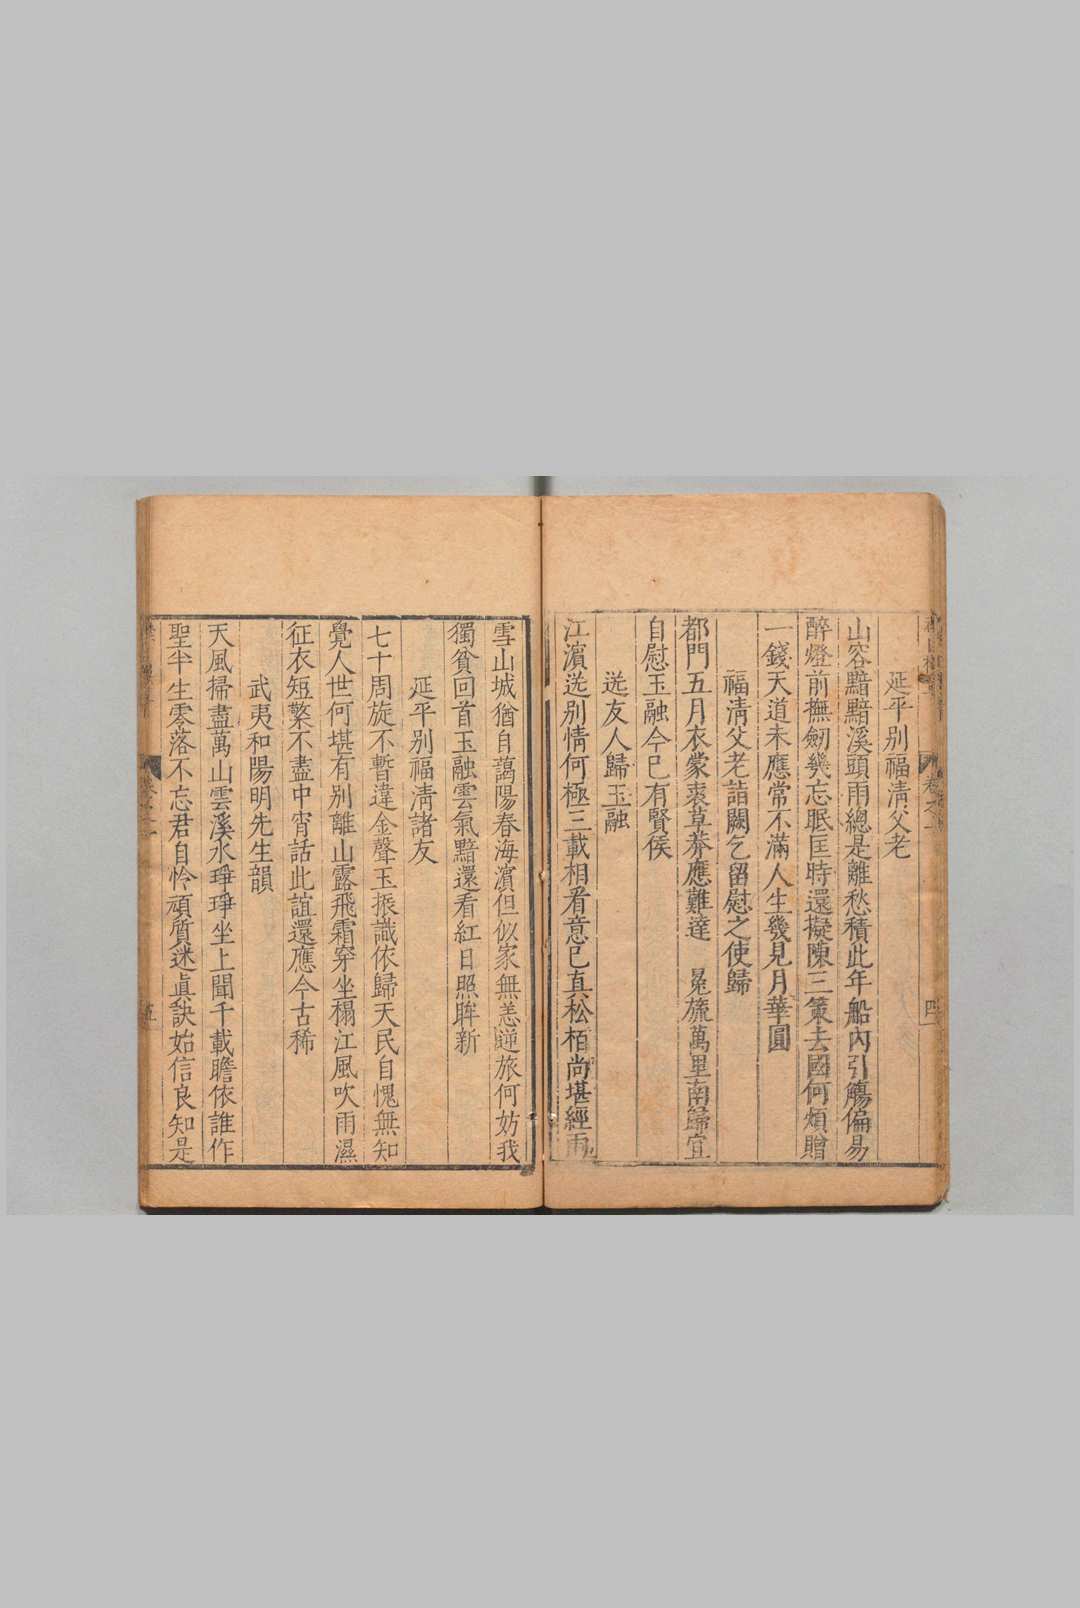 延平别福清父老
山容黯黯溪頭雨總是離愁積此年船内引觴偏易
醉燈前撫劒幾忘眠匡時還擬陳三策去國何煩贈
一錢天道未應常不滿人生幾見月華圓
福清父老詣闕乞留慰之使歸
都門五月衣蒙裘草莽應難達 冕旒萬里南歸宜
自慰玉融今已有賢侯
送友人歸玉融
江濵送别情何極三載相看意已真松栢尚堪經雨
雪山城猶自藹陽春海濵但似家無恙逆旅何妨我
獨貧回首玉融雲氣黯還看紅日照眸新
延平别福清諸友
七十周旋不暫違金聲玉振識依歸天民自愧無知
覺人世何堪有别離山露飛霜穿坐榻江風吹雨濕
征衣短檠不盡中宵話此誼還應今古稀
武夷和陽明先生韻
天風掃盡萬山雲溪水琤琤坐上聞千載瞻依誰作
聖半生零落不忘君自怜頑質迷眞訣始信良知是